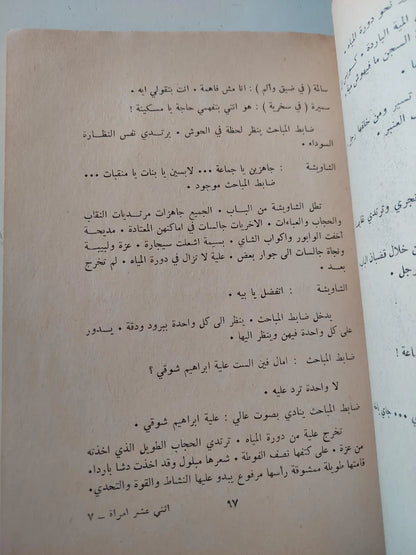 سالمة ( في ضيق وألم ) : انا مش فاهمة ٠ انت بتقولي ايه ٠
سميرة ( في سخرية ) : هو انتي بتفهمي حاجة يا مسكينة !
ضابط المباحث ينظر لحظة في الحوش ٠ يرتدي نفس النظارة
السوداء ٠
الشاويشة : جاهزين يا جماعة ٠٠٠ لابسين يا بنات يا منقبات ٠٠٠
ضابط المباحث موجود ٠
تطل الشاويشة من الباب ٠ الجميع جاهزات مرتديات النقاب
والحجاب والعباءات ٠ الاخريات جالسات في اماكنهن المعتادة ٠ مديحة
أخفت الوابور واكواب الشاي ٠ بسيمة اشعلت سيجارة ٠ عزة ولبيبة
ونجاة جالسات الى جوار بعض ٠ علية لا تزال في دورة المياه ٠ لم تخرج
بعد ٠
الشاويشة : اتفضل يا بيه ٠
يدخل ضابط المباحث ٠ ينظر الى كل واحدة ببرود ودقة ٠ يسدور
على كل واحدة فيهن وينظر اليها ٠
ضابط المباحث : امال فين الست علية ابراهيم شوقي ؟
لا واحدة ترد عليه ٠
ضابط المباحث ينادي بصوت عالي : علية ابراهيم شوقي ٠
تخرج علية من دورة المياه ٠ ترتدي الحجاب الطويل الذي اخذته
من عزة ٠ على كتفها نصف الفوطة ٠ شعرها مبلول وقد اخذت دشا باردا ٠
قامتها طويلة ممشوقة رأسها مرفوع يبدو عليها النشاط والقوة والتحدي ٠
٩٧
اثني عشر امرأة – ٧
نحو دورة المياه ٠
المية الباردة ٠
السجن ما فيهوش
تسير ومن خلفها
العنبر ٠
تجري وترتدي
خلال قضبان
رجل ٠